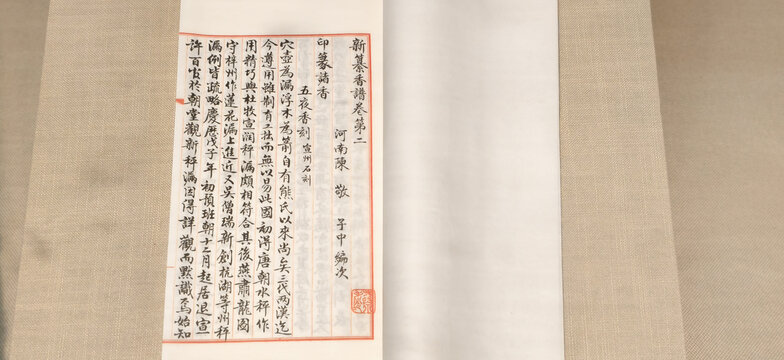 新纂香譜卷第二
河南陳 敬 子中編次
印篆諸香
五夜香刻 宣州石刻
穴壺為漏浮木為箭自有熊氏以來尚矣三代兩漢迄
今遵用雖制有工拙而無以易此國初得唐朝水秤作
用精巧與杜牧宣潤秤漏頗相符合其後燕肅龍圖
守梓州作蓮花漏上進近又吳僧瑞新創杭湖等州秤
漏例皆疏略慶歷戊子年初預班朝十二月起居退宣
許百官於朝堂觀新秤漏因得詳觀而默識焉始知